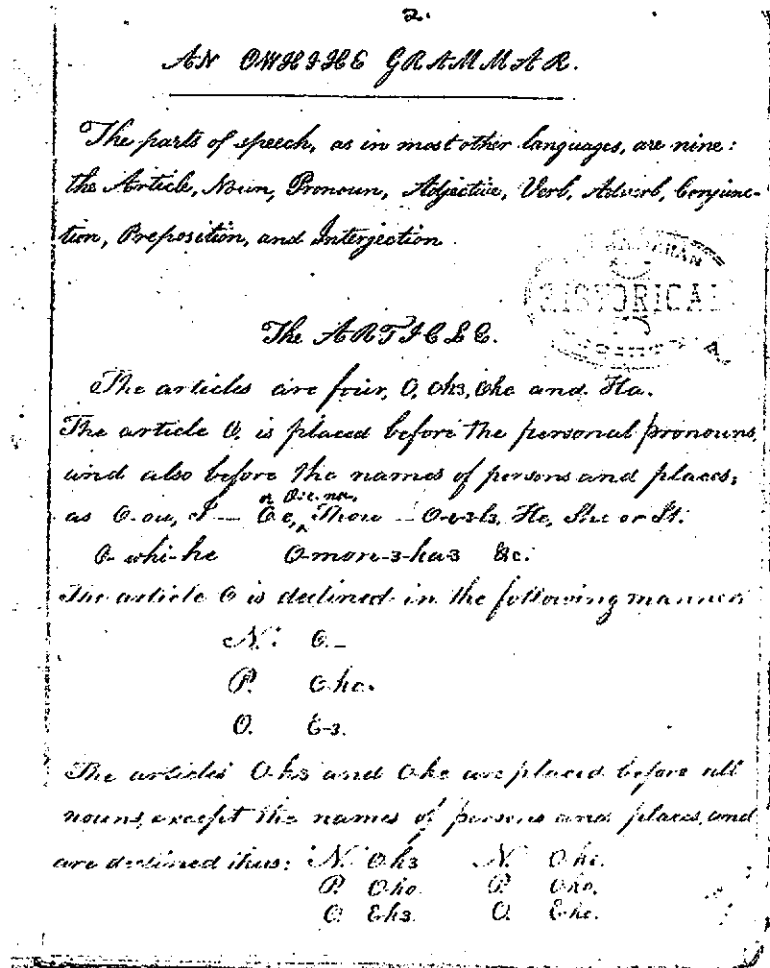 2.
AN OWHIHE GRAMMAR.
The parts of speech, as in most other languages, are nine:
the Article, Noun, Pronoun, Adjective, Verb, Adverb, Conjunc-
tion, Preposition, and Interjection.
HISTORICAL
The ARTICLE.
The articles are four, O, Oh3, Ohe and Ha.
The article O. is placed before the personal pronouns,
and also before the names of persons and places;
as O-ou, I — O-e, Thou — O-e-3-l3, He, She or It.
O-whi-he O-mor-3-ha3 &c.
The article O is declined in the following manner
N. O-
P. O-ho.
O. E-3.
The articles O-h3 and O-he are placed before all
nouns, except the names of persons and places, and
are declined thus: N. O-h3 N. O-he.
P. O-ho. P. O-ho.
O. E-h3. O. E-he.